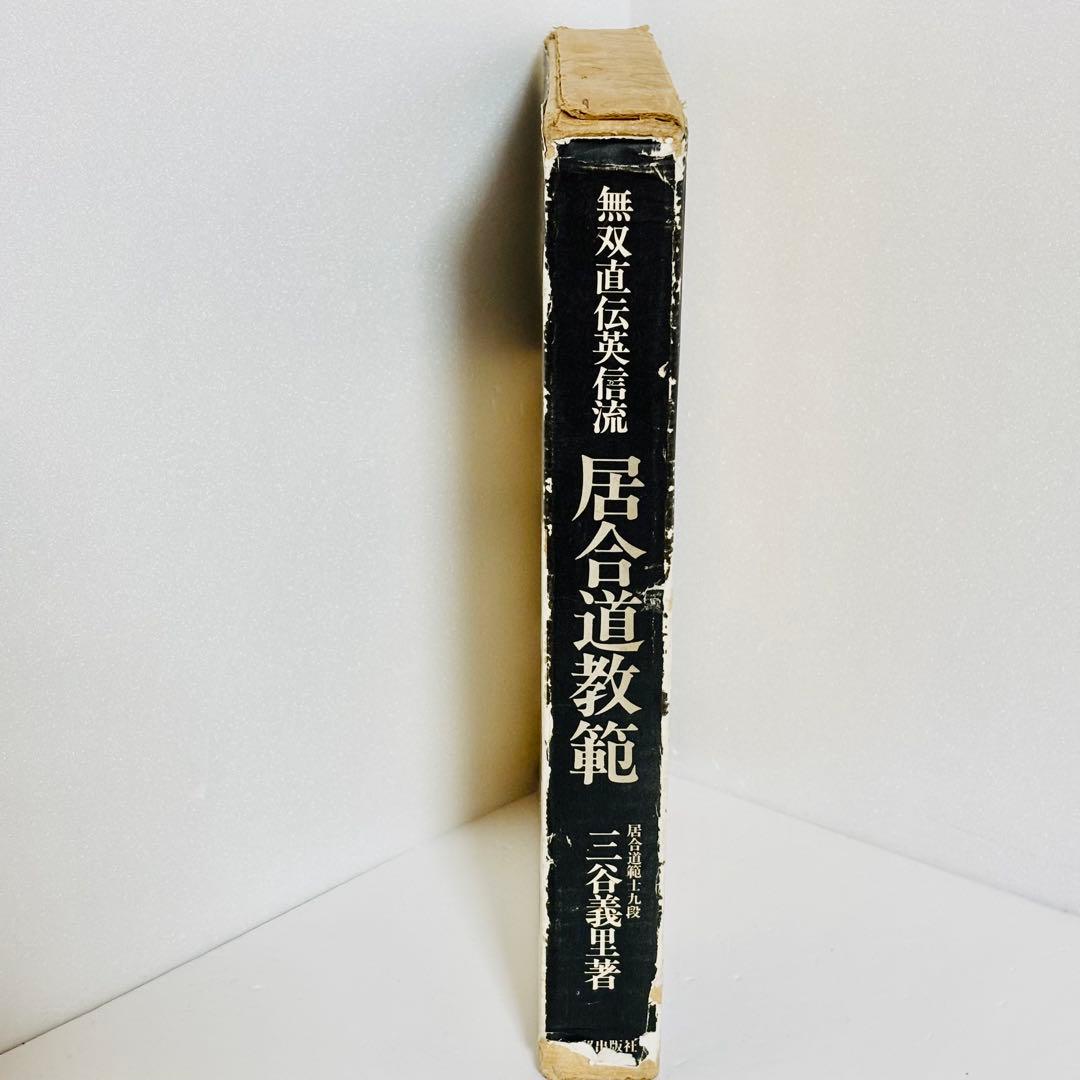 無双直伝英信流
居合道教範
居合道範士九段
三谷義里著
出版社